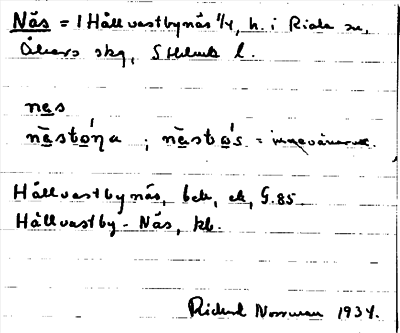 Näs = 1 Hållvastbynäs 1/4, h. i Riala sn,
Åkers skg, Sthlms l.
nas
nästớŋa ; nästo's = innevånarna.
Hållvastbynäs, bek, ek, G.85
Hållvastby-Näs, kb.
Rickard Norrman 1934.